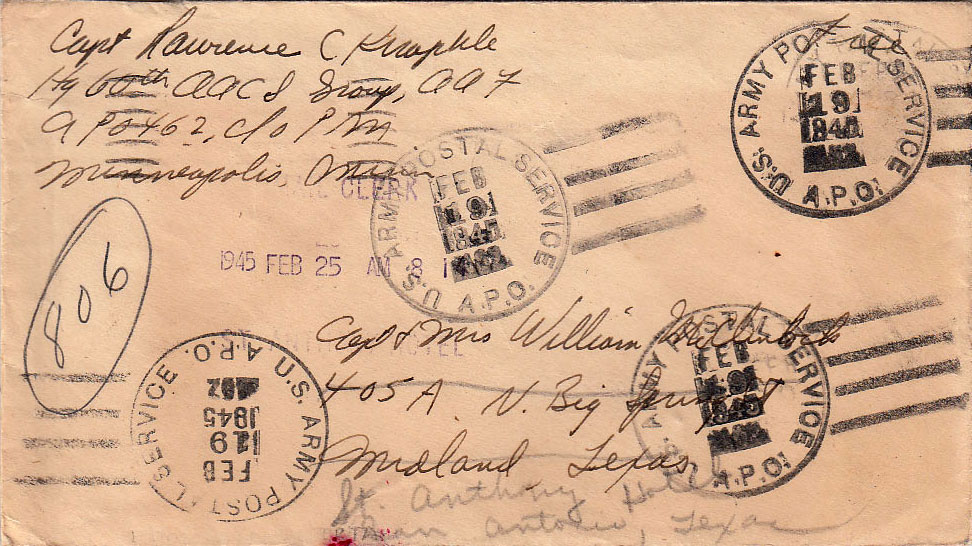 Capt Lawrence C Knapkle
Free
Hq 60th AACS Group, AAF
APO 462, c/o P M
Minneapolis, Minn
CLERK
1945 FEB 25 AM 8
806
Capt & Mrs William McClintock
HOTEL
405A N. Big Spring St
Midland, Texas
St. Anthony Hotel
San Antonio, Texas
U.S. ARMY POSTAL SERVICE A.P.O.
FEB
19
1945
462
U.S. ARMY POSTAL SERVICE A.P.O.
FEB
19
1945
462
U.S. ARMY POSTAL SERVICE A.P.O.
FEB
19
1945
462
U.S. ARMY POSTAL SERVICE A.P.O.
FEB
19
1945
462